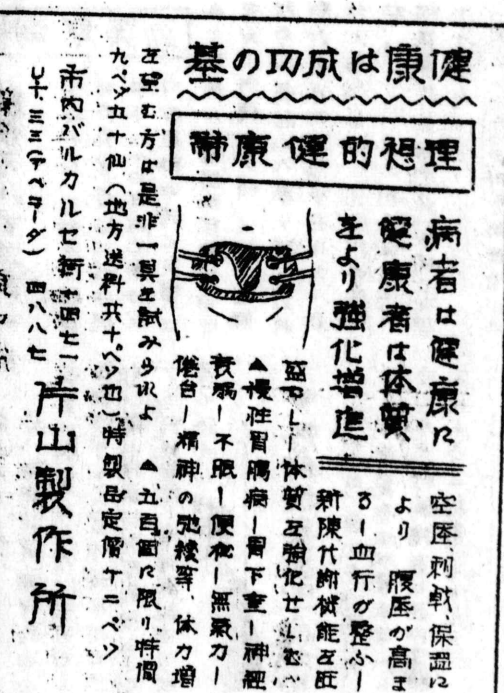 健康は成功の基
理想的健康帯
病者は健康に
健康者は体質
をより強化増進
空医刺戟保温に
より 腹圧が高ま
る―血行が整ふ―
新陳代謝機能を旺
盛にし―体質を強化せしむ
▲慢性胃腸病―胃下垂―神経
衰弱―不眠―便秘―無気力―
倦怠―精神の弛緩等 体力増
を望む方は是非一具を試みられよ ▲五百個に限り特價
九ペソ五十仙(地方送料共十ペソ也)特製品定價十二ペソ
市内バルカルセ街十四七一
UT三三(アベニーダ)四八八七
片山製作所